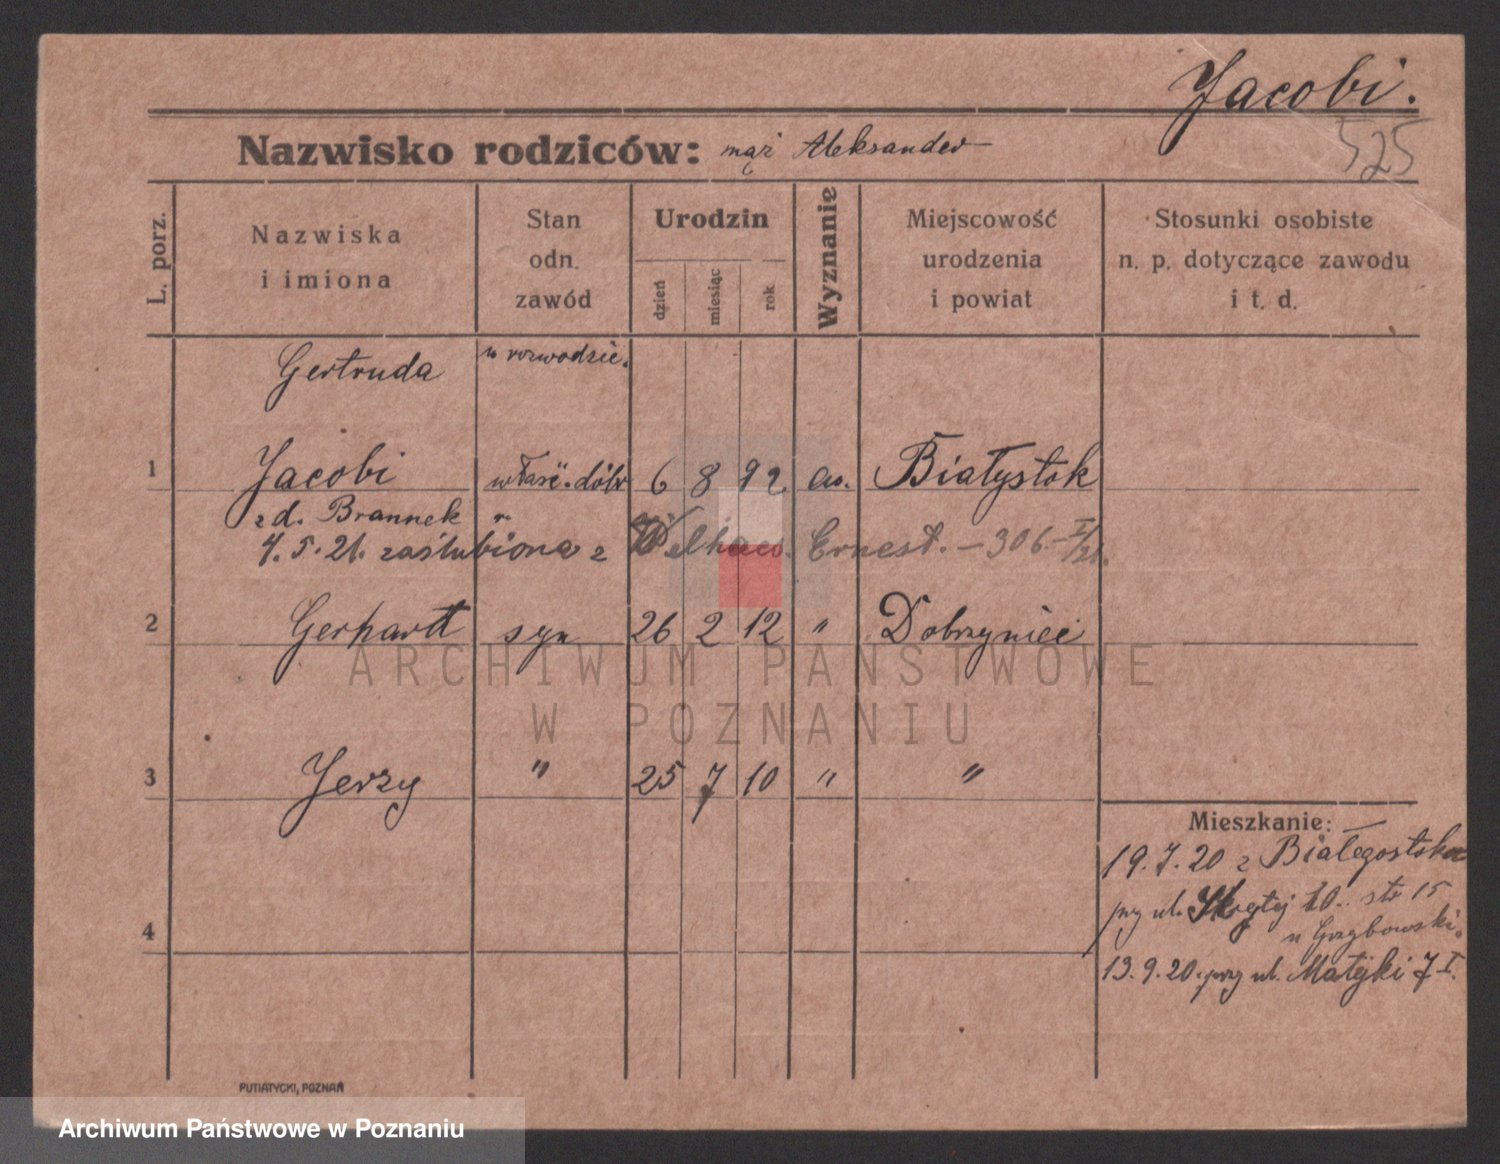 Jacobi.
525
Nazwisko rodziców: mąż Aleksander
L. porz.
Nazwiska
i imiona
Stan
odn.
zawód
Urodzin
dzień
miesiąc
rok
Wyznanie
Miejscowość
urodzenia
i powiat
Stosunki osobiste
n. p. dotyczące zawodu
i t. d.
Gertruda w rozwodzie.
1 Jacobi właśc. dóbr 6 8 92 ew. Białystok
zd. Brannek
4. 5. 21. zaślubiona z Ernest. – 306 – I/21.
2 Gerhardt syn 26 2 12 " Dobrzyniec
ARCHIWUM PAŃSTWOWE
W POZNANIU
3 Jerzy " 25 7 10 " "
Mieszkanie:
19. 7. 20 z Białegostoku
przy ul. Skrytej 10. 15
u Grzybowski.
4
13. 9. 20. przy ul. Matejki 7 I.
PUTIATYCKI, POZNAŃ
Archiwum Państwowe w Poznaniu